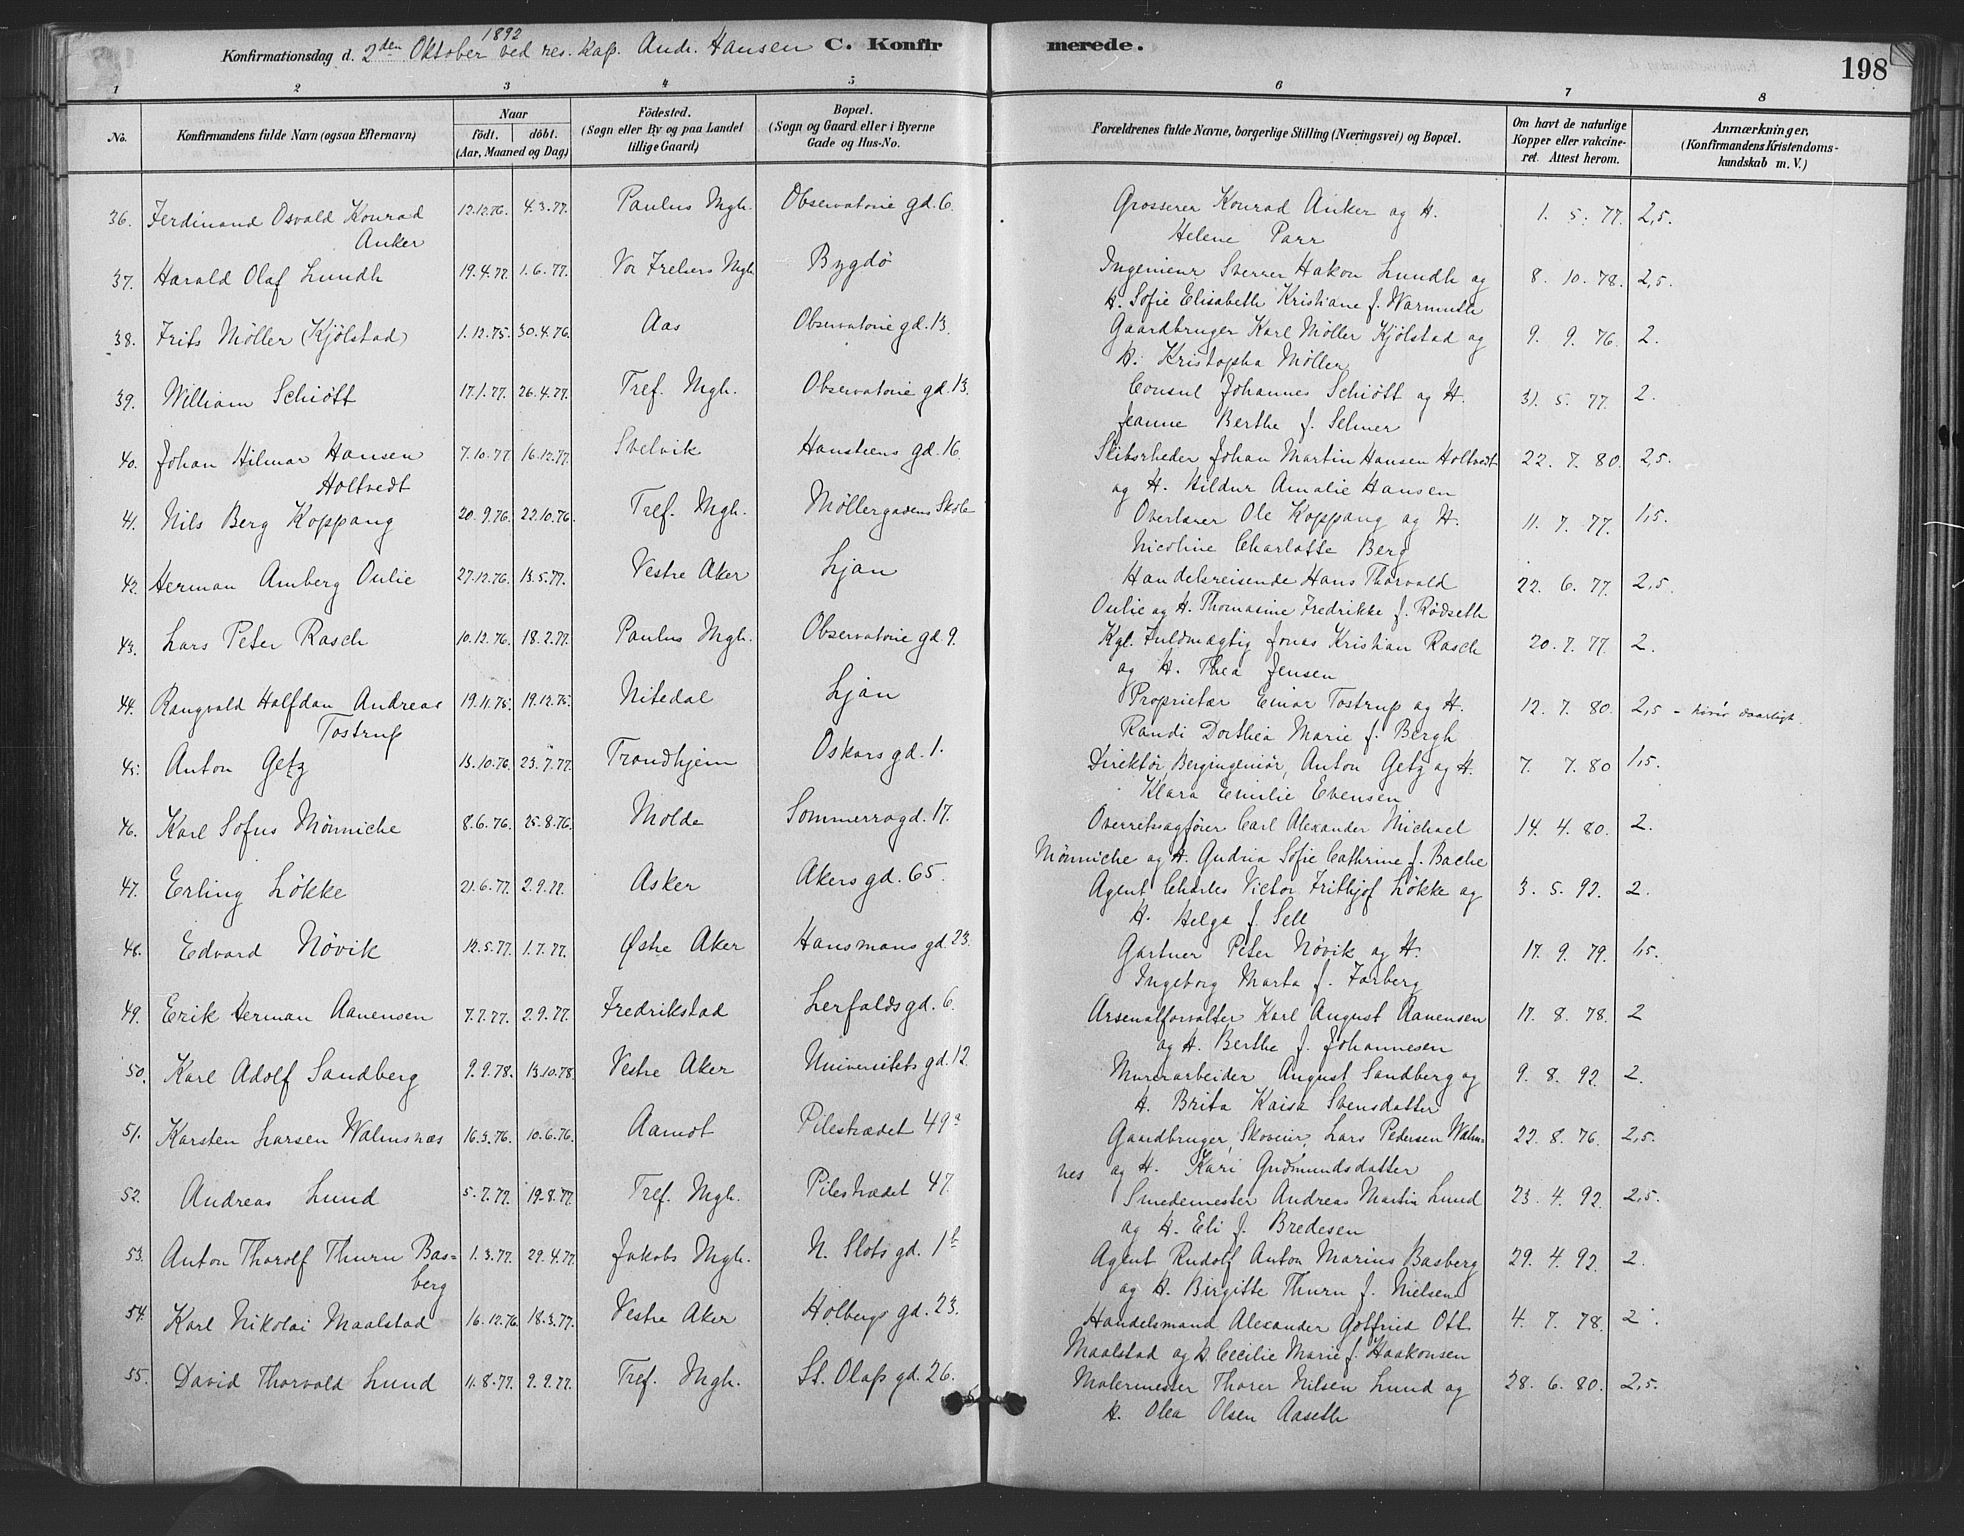 Konfirmationsdag d. 2den Oktober 1892 ved res. Kap. Andr. Hansen C. Konfirmerede. 198
1 2 3 4 5 6 7 8
No. Konfirmandens fulde Navn (ogsaa Efternavn) Naar födt. döbt. (Aar, Maaned og Dag) Födested. (Sogn eller By og paa Landet tillige Gaard) Bopæl. (Sogn og Gaard eller i Byerne Gade og Hus-No. Forældrenes fulde Navne, borgerlige Stilling (Næringsvei) og Bopæl. Om havt de naturlige Kopper eller vakcineret. Attest herom. Anmærkninger. (Konfirmandens Kristendomskundskab m. V.)
36. Ferdinand Osvald Konrad 12.12.76. 4.3.77. Paulus Mgh. Observatorie gd. 6. Grosserer Konrad Anker og H. 1. 5. 77. 2,5.
Anker Helene Parr
37. Harald Olaf Lundh 19.4.77. 1.6.77. Vor Frelsers Mgh Bygdö Ingenieur Sverrer Hakon Lundh og 8. 10. 78. 2,5.
H. Sofie Elisabeth Kristiane f. Warmuth
38. Frits Möller (Kjölstad) 1.12.75. 30.4.76. Aas Observatorie gd. 13. Gaardbruger Karl Möller Kjölstad og 9. 9. 76. 2.
H. Kristopha Möller
39. William Schiött 17.1.77. 26.4.77. Tref. Mgh. Observatorie gd. 13. Consul Johannes Schiött og H. 31. 5. 77. 2.
Jeanne Berthe f. Selmer
40. Johan Hilmar Hansen 7.10.77 16.12.77. Svelvik Hansteens gd. 16. Skibsrheder Johan Martin Hansen Holtvedt 22. 7. 80. 2,5.
Holtvedt og H. Hildur Amalie Hansen
41. Nils Berg Koppang 20.9.76. 22.10.76. Tref. Mgh. Møllergadens Skole Overlærer Ole Koppang og H. 11. 7. 77. 1,5.
Nicoline Charlotte Berg
42. Herman Amberg Oulie 27.12.76. 13.5.77. Vestre Aker Ljan Handelsreisende Hans Thorvald 22. 6. 77. 2,5.
Oulie og H. Thomasine Fredrikke f. Rødseth
43. Lars Peter Rasch 10.12.76. 18.2.77. Paulus Mgh. Observatorie gd. 9. Kgl. Fuldmægtig Jonas Kristian Rasch 20. 7. 77. 2.
og H. Thea Jensen
44. Rangvald Halfdan Andreas 19.11.75. 19.12.75. Nitedal Ljan Proprietær Einar Tostrup og H. 12. 7. 80. 2,5 – hører daarligt.
Tostrup Randi Dorthea Marie f. Bergh
45. Anton Getz 13.10.76. 23.7.77. Trondhjem Oskars gd. 1. Direktør, Bergingeniør, Anton Getz og H. 7. 7. 80 1,5.
Klara Emilie Evensen
46. Karl Sofus Mönniche 8.6.76. 25.8.76. Molde Sommerrogd. 17. Overretssagfører Carl Alexander Michael 14. 4. 80. 2.
Mönniche og H. Sofie Cathrine f. Bache
47. Erling Lökke 21.6.77. 2.9.77. Asker Akers gd. 65. Agent Charles Victor Frithjof Lökke og 3. 5. 92. 2.
H. Helga f. Sell
48. Edvard Növik 12.5.77. 1.7.77. Østre Aker Hansmans gd. 23. Gartner Peter Növik og H. 17. 9. 79. 1,5.
Ingeborg Marta f. Farberg
49. Erik Herman Aanensen 7.7.77. 2.9.77. Fredrikstad Lerfalds gd. 6. Arsenalforvalter Karl August Aanensen 17. 8. 78. 2
og H. Berthe f. Johannesen
50. Karl Adolf Sandberg 9.9.78. 13.10.78. Vestre Aker Universitets gd. 12. Murerarbeider August Sandberg og 9. 8. 92. 2.
H. Brita Kaisa Svensdatter
51. Karsten Larsen Walmsnæs 16.3.76. 10.6.76. Aamot Pilestrædet 49 Gaardbruger, Skoveier, Lars Pedersen Walms- 22. 8. 76. 2,5.
nes og H. Kari Gudmundsdatter
52. Andreas Lund 5.7.77. 19.8.77. Tref. Mgh. Pilestrædet 47. Smedemester Andreas Martin Lund 23. 4. 92. 2,5.
og H. Eli f. Bredesen
53. Anton Thorolf Thurn Bas- 1.3.77. 29.4.77 Jakobs Mgh. N. Slots gd. 1b Agent Rudolf Anton Marius Basberg 29. 4. 92. 2.
berg og H. Birgitte Thurn f. Nielsen
54. Karl Nikolai Maalstad 16.12.76. 18.3.77. Vestre Aker Holbergs gd. 23. Handelsmand Alexander Gotfried Ott 4. 7. 78. 2.
Maalstad og H. Cecilie Marie f. Haakonsen
55. David Thorvald Lund 11.8.77. 9.9.77. Tref. Mgh. St. Olafs gd. 26. Malermester Thorer Nilsen Lund og 28. 6. 80. 2,5.
H. Olea Olsen Aaseth